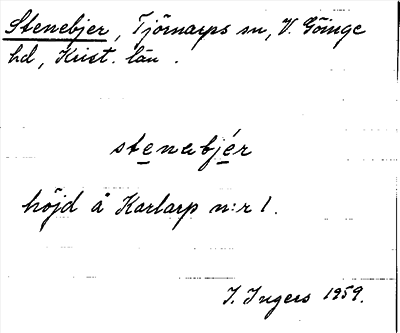 Stenebjer, Tjörnarps sn, V. Göinge
hd, Krist. län.
stenabjér
höjd å Karlarp n:r 1.
I. Ingers 1959.